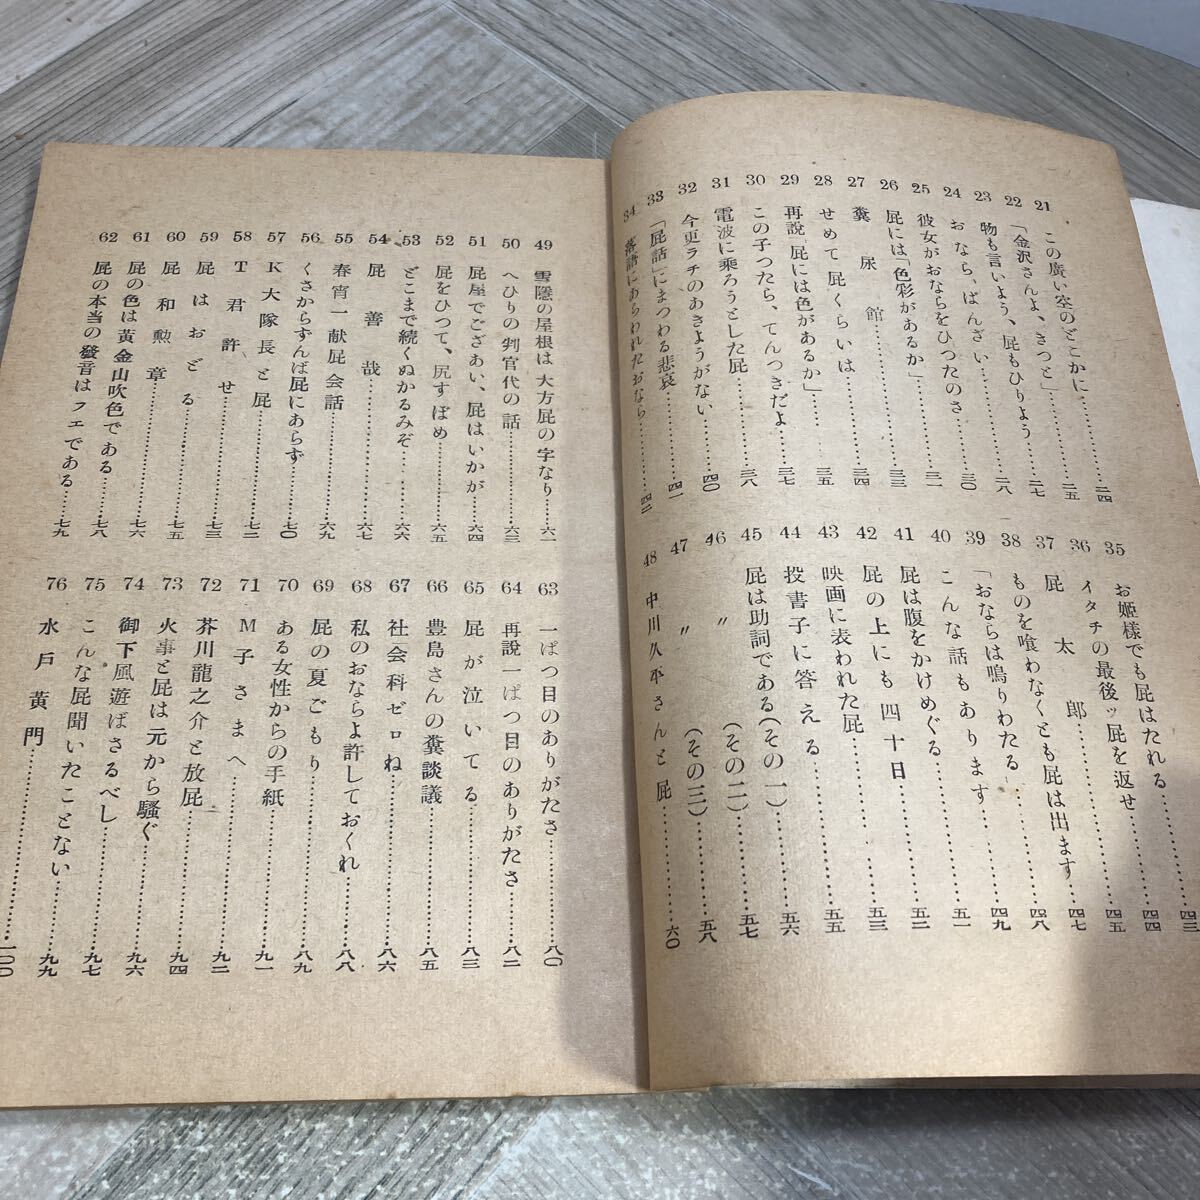 21 この廣い空のどこかに……二四
22 「金沢さんよ、きつと」……二五
23 物も言いよう、屁もひりよう……二七
24 おなら、ばんざい……二八
25 彼女がおならをひつたのさ……三〇
26 屁には「色彩があるか」……三二
27 糞尿館……三三
28 せめて屁くらいは……三四
29 再説「屁には色があるか」……三五
30 この子つたら、てんつきだよ……三七
31 電波に乘ろうとした屁……三八
32 今更ラチのあきようがない……四〇
33 「屁話」にまつわる悲哀……四一
34 落語にあらわれたおなら……四二
35 お姫樣でも屁はたれる……四三
36 イタチの最後ッ屁を返せ……四四
37 屁太郎……四五
38 ものを喰わなくとも屁は出ます……四七
39 「おならは鳴りわたる……四八
40 こんな話もあります……四九
41 屁は腹をかけめぐる……五一
42 屁の上にも四十日……五三
43 映画に表われた屁……五五
44 投書子に答える……五六
45 屁は助詞である(その一)……五七
46 〃 (その二)……五八
47 〃 (その三)
48 中川久平さんと屁……六〇
49 雪隱の屋根は大方屁の字なり……六一
50 へひりの判官代の話……六三
51 屁屋でござあい、屁はいかが……六四
52 屁をひつて、尻すぼめ……六五
53 どこまで続くぬかるみぞ……六六
54 屁善哉……六七
55 春宵一献屁会話……六九
56 くさからずんば屁にあらず……七〇
57 K大隊長と屁……七二
58 T君許せ……七三
59 屁はおどる……七五
60 屁和勲章……七六
61 屁の色は黃金山吹色である……七八
62 屁の本当の發音はフェである……七九
63 一ぱつ目のありがたさ……八〇
64 再說一ぱつ目のありがたさ……八二
65 屁が泣いてる……八三
66 豊島さんの糞談議……八五
67 社会科ゼロね……八六
68 私のおならよ許しておくれ……八八
69 屁の夏ごもり……八九
70 ある女性からの手紙……九一
71 M子さまへ……九二
72 芥川龍之介と放屁……九四
73 火事と屁は元から騷ぐ……九六
74 御下風遊ばさるべし……九七
75 こんな屁聞いたことない……九九
76 水戸黃門……一〇〇